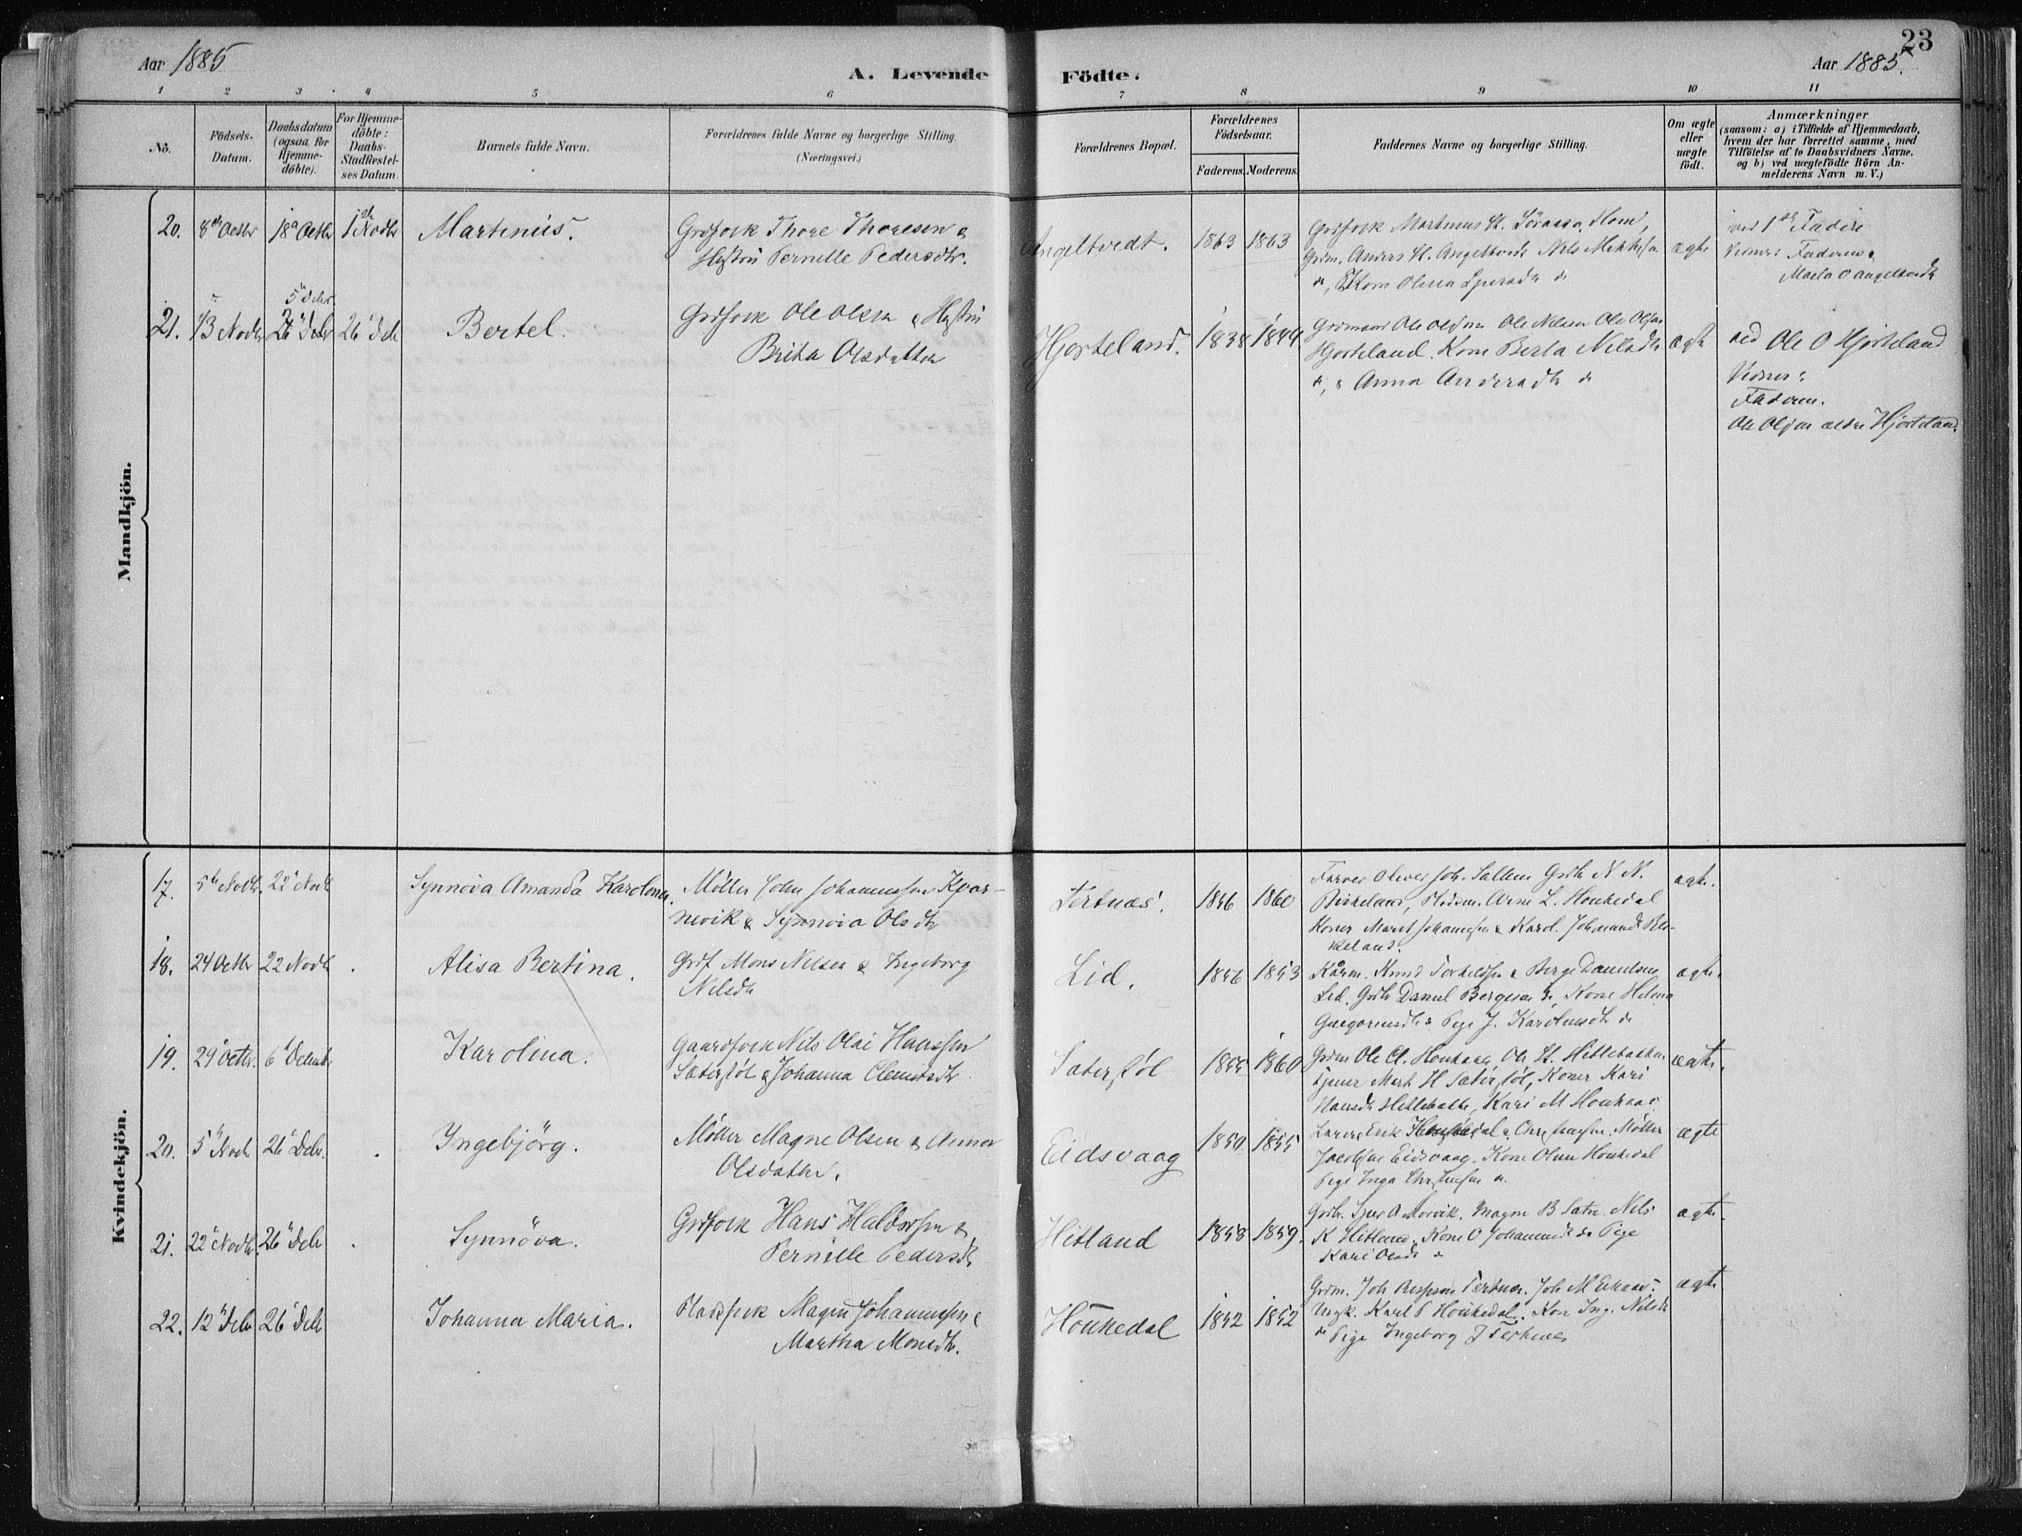 Aar 1885
A. Levende Födte.
23
Aar 1885.
1 2 3 4 5 6 7 8 9 10 11
Nö.
Födsels-Datum.
Daabsdatum (ogsaa for Hjemme-döbte).
For Hjemme-döbte: Daabs-Stadfæstel-ses Datum.
Barnets fulde Navn.
Forældrenes fulde Navne og borgerlige Stilling. (Næringsvei.)
Forældrenes Bopæl.
Forældrenes Födselsaar.
Faderens. Moderens.
Faddernes Navne og borgerlige Stilling.
Om ægte eller uægte födt.
Anmærkninger
(saasom: a) i Tilfælde af Hjemmedaab, hvem der har forrettet samme, med Tilföielse af to Daabsvidners Navne, og b) ved uægtefödte Börn An-melderens Navn m. V.)
Mandkjön.
20. 8 Octbr 18 Octbr 1 Novbr Martinius. Grdfolk Thore Thoresen &
Hustru Pernille Pedersdtr.
Angeltvedt. 1863 1863
Grdm. Anders Angeltvedt Nils
ægte
Vidner: Faderen &
Marta O Angeltvedt
5 Decbr
21. 13 Novbr 26 Decbr 26 Dcbr Bertel. Grdfolk Ole Olsen & Hustru
Brita Olsdatter
Hjorteland. 1838 1844
Grdmænd Ole Olsen Ole Nilsen Ole Olsen
Hjorteland. Kone Berta Nilsdtr
do, & Anna Andersdtr do
ægte
ved Ole O Hjorteland
Vidner:
Faderen.
Ole Olsen ældre Hjorteland.
Kvindekjön.
17. 5 Novbr. 22 Novbr Synnöva Amanda Karolina. Møller John Johannessen Kvar-
nevik & Synnöva Olsdtr
Tertnæs. 1856 1860
Farver Oliver Joh. Sellem Grdbr N. N.
Birkeland, Pladsm. Arne L. Houkedal
Koner Marit Johannesen & Karol. Johannesdtr Bir-
keland.
ægte.
18. 24 Octbr 22 Novbr Alisa Bertina. Grdf Mons Nilsen & Ingeborg
Nilsdtr
Lid. 1856 1853
Kårm. Knud Torkeldsen & Berge Danielsen
Lid. Grdbr Daniel Bergesen do, Kone Helena
Gregoriusdtr & Pige J. Karolusdtr do
ægte.
19. 29 Octbr. 6 Decembr Karolina. Gaardfolk Nils Olai Hanssen
Sætersföl & Johanna Clemetsdtr
Sætersföl 1855 1860
Grdm Ole Cl. Houkaas, Ole H. Hitlebakken
Tjener Mart H Sætersföl, Koner Kari
Hansdtr Hitlebakk, Kari M Houkaas
ægte.
20. 5 Novbr 26 Dcbr. Ingebjörg. Møller Magne Olsen & Anna
Olsdatter.
Eidsvaag 1850 1855
Lærer Erik Houkedal, Christensen Møller
Eidsvaag. Kone Olina Houkedal
Pige Inga Christensen do.
ægte
21. 22 Novbr 26 Dcbr Synnöva. Grdfolk Hans Haldorsen &
Pernille Pedersdtr
Hitland 1858 1859.
Grdbr. Sjur A Morvik. Magne B Sætre Nils
K Hitland, Kone O Johannesdtr do Pige
Kari Olsdtr do
ægte.
22. 12 Dcbr 26 Dcbr Johanna Maria. Pladsfolk Magne Johannessen &
Martha Monsdtr.
Houkedal 1852 1852
Grdm. Joh Tertnæs. Joh M Eikaas.
Ungk. Karl P Houkedal. Kone Ing. Nilsdtr
do Pige Ingeborg J Tertnes
ægte